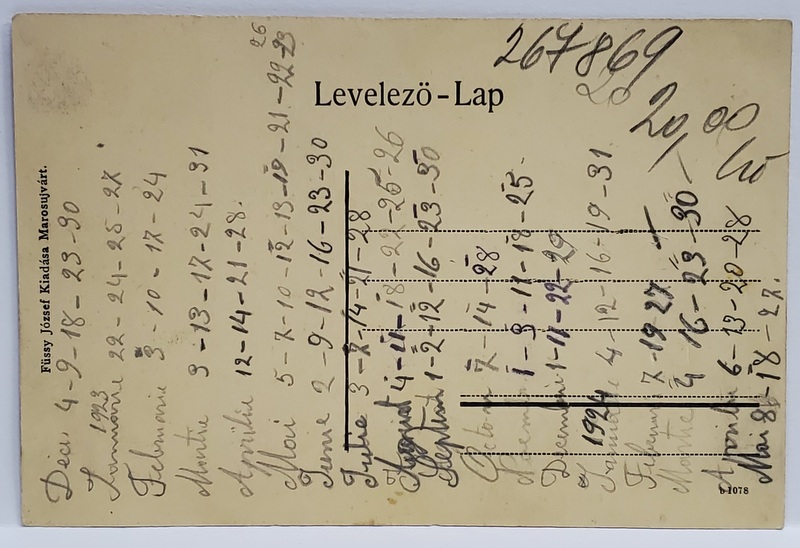 267869
20
Levelezö-Lap
20,00
Füssy József Kiadása Marosujvárt.
Dec. 4-9-18-23-30
1923
Januarie 22-24-25-27
Februarie 3-10-17-24
Martie 3-13-17-24-31
Aprilie 12-14-21-28.
26
Mai 5-7-10-12-13-19-21-22-23
Iunie 2-9-12-16-23-30
Iulie 3-7-14-21-28
August 4-11-18-22-25-26
Septem 1-2-12-16-23-30
Octom 7-14-28
Noiem 1-3-11-18-25.
Decembrie 1-11-22-29
1924
Januarie 4-12-16-19-31
Februar 7-19 27
Martie 4 16-23-30
Aprilie 6-13-20-28
Mai 8-18-27.
b 1078